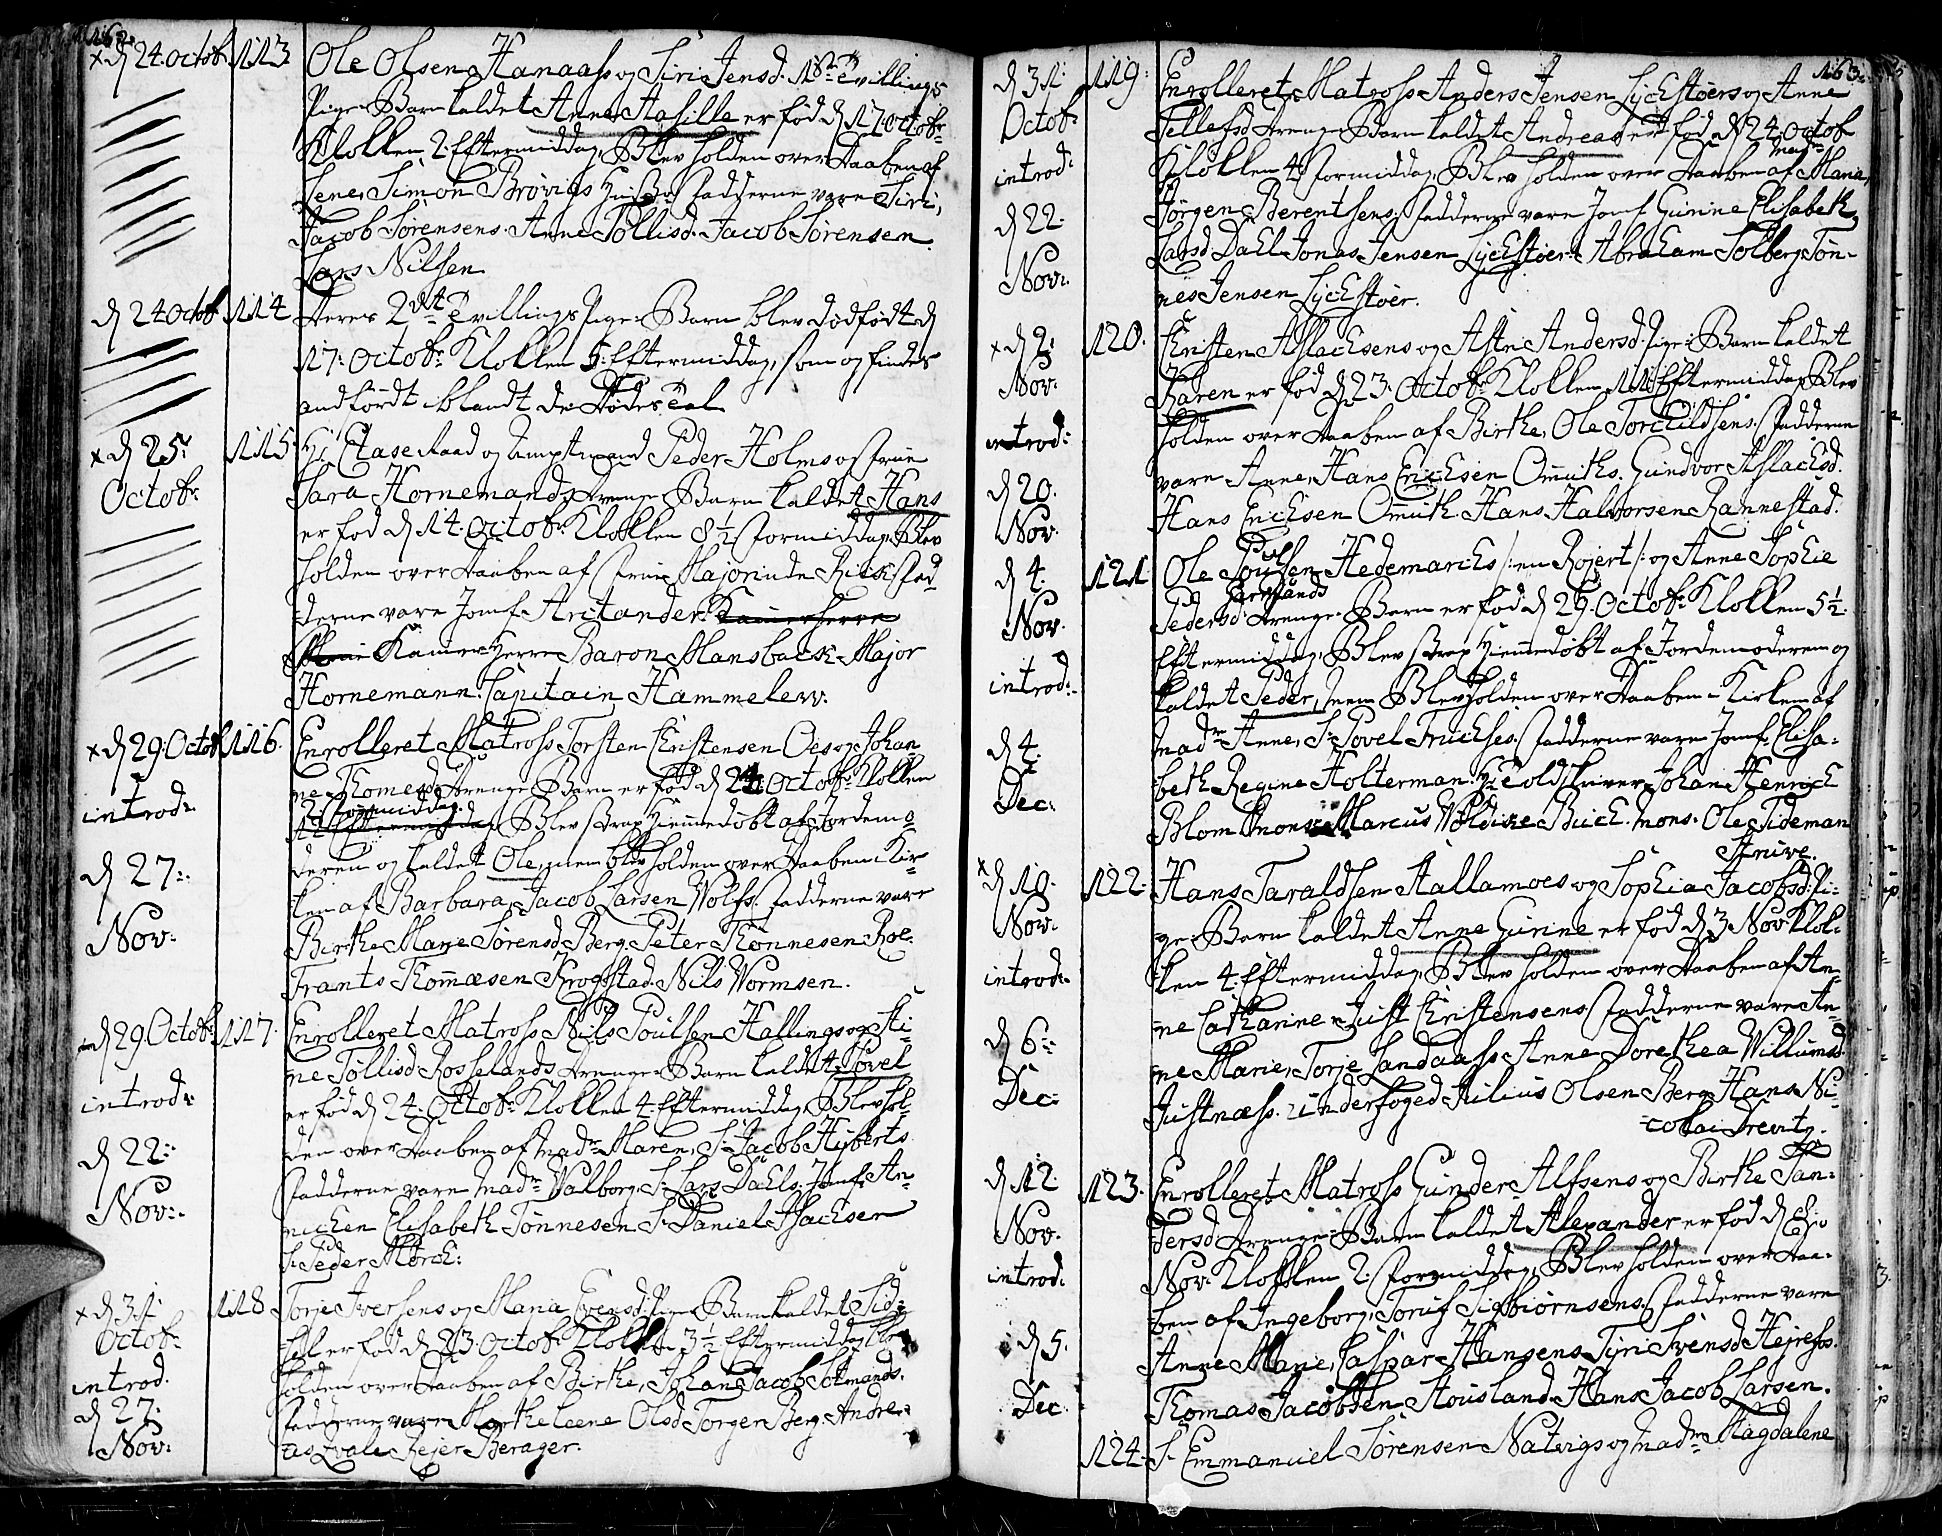 162.
× d 24. Octob. 113. Ole Olsen Hanaass og Siri Jensd. 1ste Tvillings
Pige-Barn kaldet Anne Aasille er fød d 17. Octobr
Klokken 2 Eftermiddag, Blev holden over Daaben af
Lene, Simon Brøvigs Fadderne vare Siri,
Jacob Sørensens. Anne Tøllisd. Jacob Sørensen.
Lars Nilsen
d 24 Octob 114. Deres 2det Tvillings Pige-Barn blev dødfødt d
17. Octobr: Klokken 5 Eftermiddag, som og findes
andført iblandt de Dødes Tal
× d 25. Octobr. 115. Hr Etatsraad og Amptmand Peder Holms og Frue
Sara Hornemands Drenge-Barn kaldet Hans
er fød d 14. Octobr: Klokken 8½ Formiddag, Blev
holden over Daaben af Frue Majorinde Rick Fad-
derne vare Jomf. Aritander. Kamerherre
Kamer-Herre Baron Mansback. Major
Hornemann. Capitain Hammelew.
× d 29. Octob 116. Enrolleret Matross Torsten Christensen Oes og Johan
ne Thomesd. Drenge-Barn er fød d 24 Octobr: Klokken
2. Formiddag.
Eftermiddag, Blev strax Hiemmedøbt af Jordemo-
deren og kaldet Ole, men blev holden over Daaben i Kir-
ken af Barbara, Jacob Larsen Wolfs. Fadderne vare
Birthe Marie Sørensd Berg. Peter Thønnesen Roe.
Frants Thommæsen Krogstad. Nils Wormsen.
introd.
d 27. Nov.
d 29. Octobr. 117. Enrolleret Matross Nils Poulsen Hallings og Ki-
ne Tøllisd Rosselands Drenge-Barn kaldet Povel
er fød d 24. Octobr: Klokken 4. Eftermiddag, Blev hol-
den over Daaben af Madm Maren, Sr Jacob Hyberts
Fadderne vare Madm Valborg, Sr Lars Dahls. Jomf. An-
nichen Elisabeth Tønnesen Sr Daniel Aslachsen
Sr Peder Mørch:
introd.
d 22. Nov.
× d 31. Octob. 118. Torje Iversens og Maria Svensd. Pige-Barn kaldet Sid-
sel er fød d 23. Octobr Klokken 3½ Eftermiddag, Blev
holden over Daaben af Birthe, Johan Jacob Sotmands.
Fadderne vare Marthe Leene Olsd Jørgen Berg. Andre-
as Qvale Rejer Berager.
introd.
d 27. Nov.
163.
d 31. Octob. 119. Enrolleret Matross Anders Jensen Lyckstøers og Anne
Tellefsd Drenge-Barn kaldet Andreas er fød d 24 Octob
Klokken 4 Formiddag, Blev holden over Daaben af Madm Maria,
Jørgen Berentsens. Fadderne vare Jomf. Gurine Elisabeth
Larsd Dahl Jonas Jensen Lyckstøer. Abraham Solberg Tøn-
nes Jensen Lyckstøer.
introd.
d 22. Nov.
× d 2. Nov. 120. Christen Aslachsens og Astri Andersd. Pige-Barn kaldet
Karen er fød d 23. Octobr: Klokken 11 Eftermiddag, Blev
holden over Daaben af Birthe, Ole Torchildsens. Fadderne
vare Anne, Hans Erichsen Ommuths. Gundvor Aslachsd.
Hans Erichsen Ommuth. Hans Halvorsen Rannestad.
introd.
d 20. Nov.
d 4. Nov. 121. Ole Poulsen Hedemarchs /: en Rojert :/ og Anne Sophie
Pedersd. Drenge-Barn er fød d 29. Octobr: Klokken 5½
Eftermiddag, Blev strax Hiemmedøbt af Jordemoderen og
kaldet Peder, men Blev holden over Daaben i Kirken af
Madm Anne, Sr Povel Trichses. Fadderne vare Jomf. Elisa-
beth Regine Holterman. Hr Toldskriver Johan Henrich
Blom Mons. Marcus Wøldike Buch. Mons: Ole Tideman
introd.
d 4. Dec:
× d 10. Nov. 122. Hans Taraldsen Kallamoes og Sophia Jacobsd. Pi-
ge-Barn kaldet Anne Gurine er fød d 3 Nov: Klok-
ken 4. Eftermiddag, Blev holden over Daaben af An-
ne Catharine, Just Christensens Fadderne vare An-
ne Marie, Torje Sandaass. Anne Dorethea Willumsd
Justnæss. Underfoged Julius Olsen Berg. Hans Ni-
colai
introd.
d 6. Dec:
d 12. Nov. 123. Enrolleret Matross Gunder Alfsens og Birthe San-
dersd Drenge-Barn kaldet Alexander er fød d
Nov. Klokken 2. Formiddag, Blev holden over Daa-
ben af Ingeborg, Toruf Sigbiørnsens. Fadderne vare
Anne Marie, Caspar Hansens. Tyri Svensd
Thomas Jacobsen Stousland. Hans Jacob Larsen.
introd.
d 5. Dec.
124. Sr Emmanuel Sørensen Natvigs og Madm Magdalene